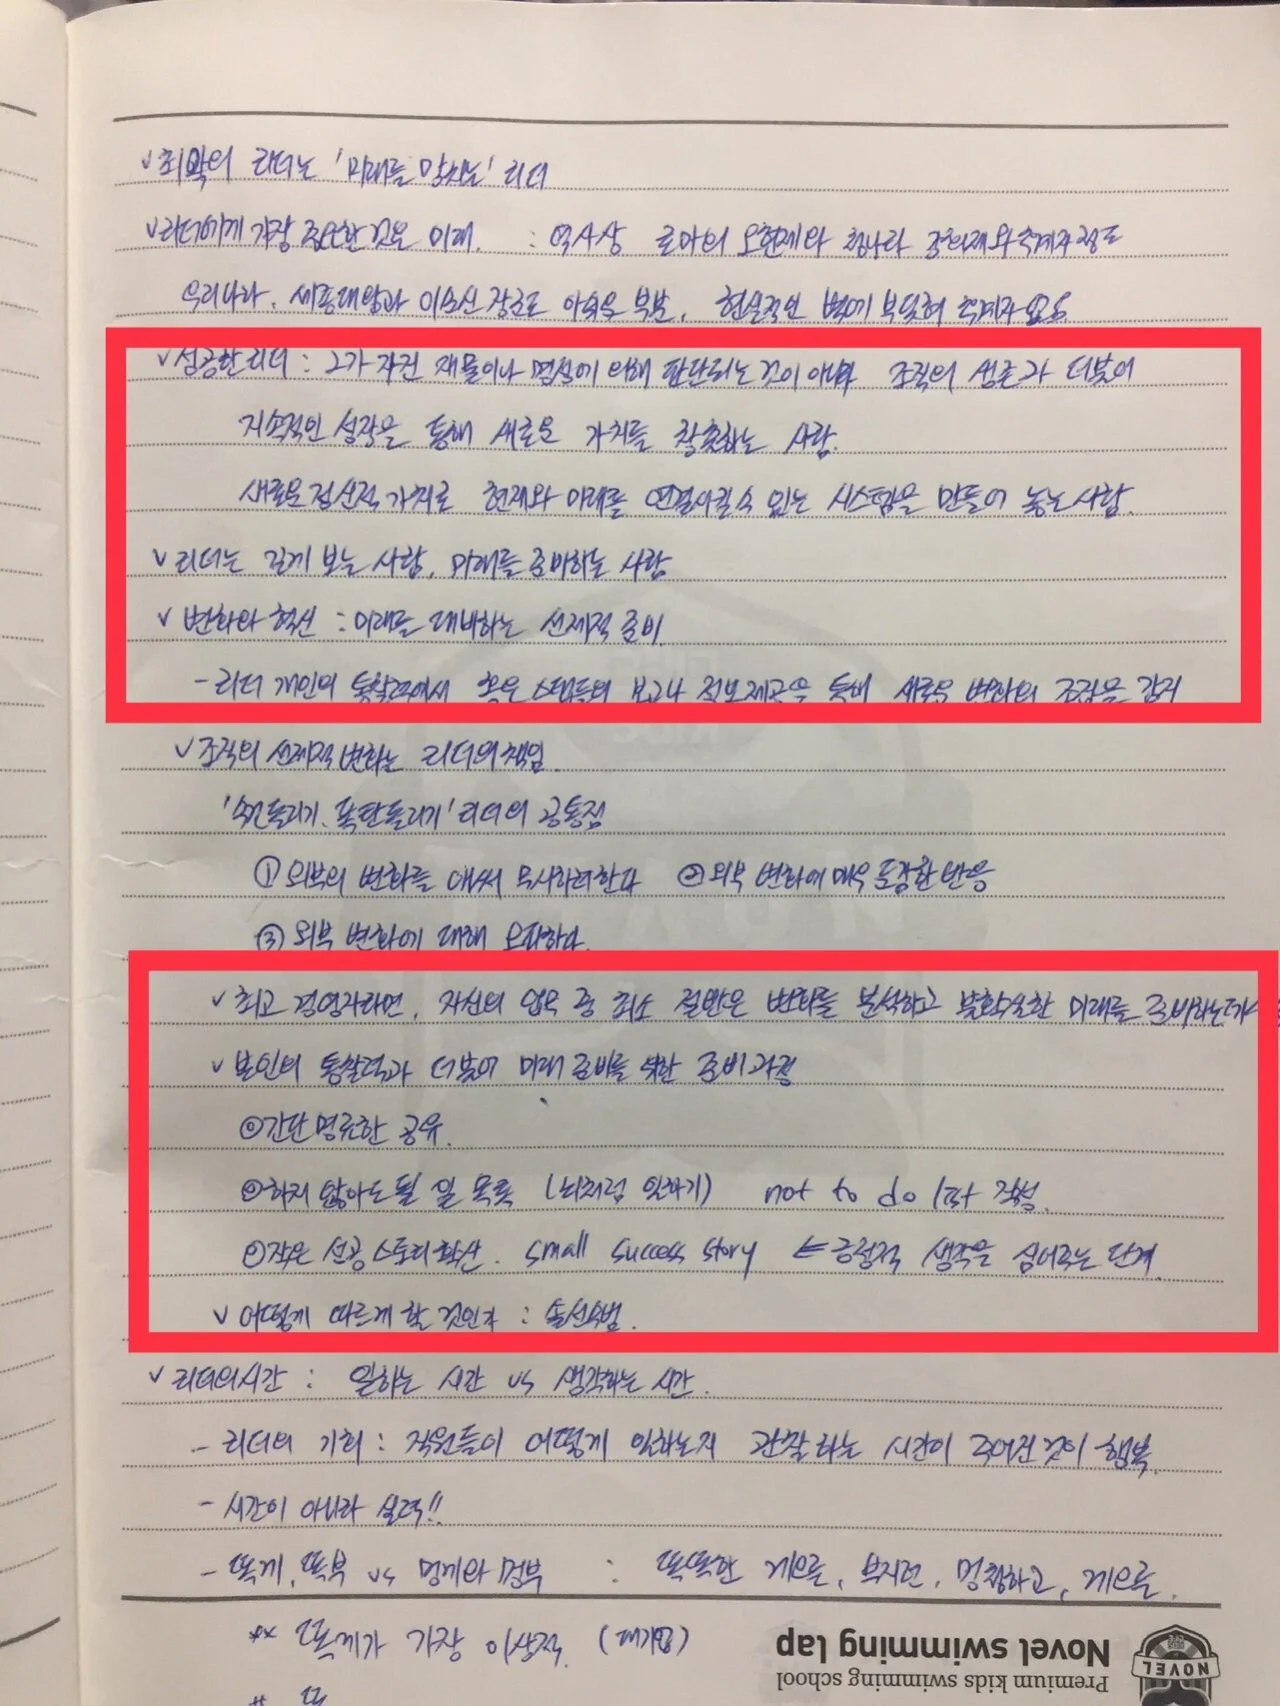 √ 최악의 리더는 '미래를 망치는' 리더
√ 리더에게 가장 중요한 것은 미래. : 역사상 로마의 오현제와 청나라 강희제와 후계자 정도
우리나라. 세종대왕과 이순신 장군도 아쉬운 부분. 현실적인 벽에 부딪혀 후계자
√ 성공한 리더 : 그가 가진 재물이나 명성에 의해 판단되는 것이 아니라 조직의 생존과 더불어
지속적인 성장을 통해 새로운 가치를 창출하는 사람.
새로운 정신적 가치로 현재와 미래를 연결시킬 수 있는 시스템을 만들어 놓는 사람.
√ 리더는 길게 보는 사람, 미래를 준비하는 사람
√ 변화와 혁신 : 미래를 대비하는 선제적 준비
- 리더 개인의 통찰력에서 혹은 스탭들의 보고나 정보제공을 통해 새로운 변화의 조짐을 감지
√ 조직의 선제적 변화는 리더의 책임.
'폭탄돌리기' 리더의 공통점
① 외부의 변화를 애써 무시하려한다 ② 외부 변화에 매우 둔감한 반응
③ 외부 변화에 대해 오판하다.
√ 최고 경영자라면, 자신의 업무 중 최소 절반은 변화를 분석하고 불확실한 미래를 준비하는데
√ 본인의 통찰력과 더불어 미래 준비를 위한 준비과정
◎ 간단 명료한 공유.
◎ 하지 않아도 될 일 목록 (뇌처럼 잊하기) not to do list 작성.
◎ 작은 성공 스토리 확산. small success story ⇐ 긍정적 생각을 심어주는 단계.
√ 어떻게 따르게 할 것인가 : 솔선수범.
√ 리더의 시간 : 일하는 시간 vs 생각하는 시간.
- 리더의 기회 : 직원들이 어떻게 일하는지 관찰하는 시간이 주어진 것이 행복.
- 시간이 아니라 실력!!
- 똑게, 똑부 vs 멍게와 멍부 : 똑똑한 게으름, 부지런, 멍청하고, 게으름.
** 똑게가 가장 이상적.
Novel swimming lap
Premium kids swimming school
NOVEL